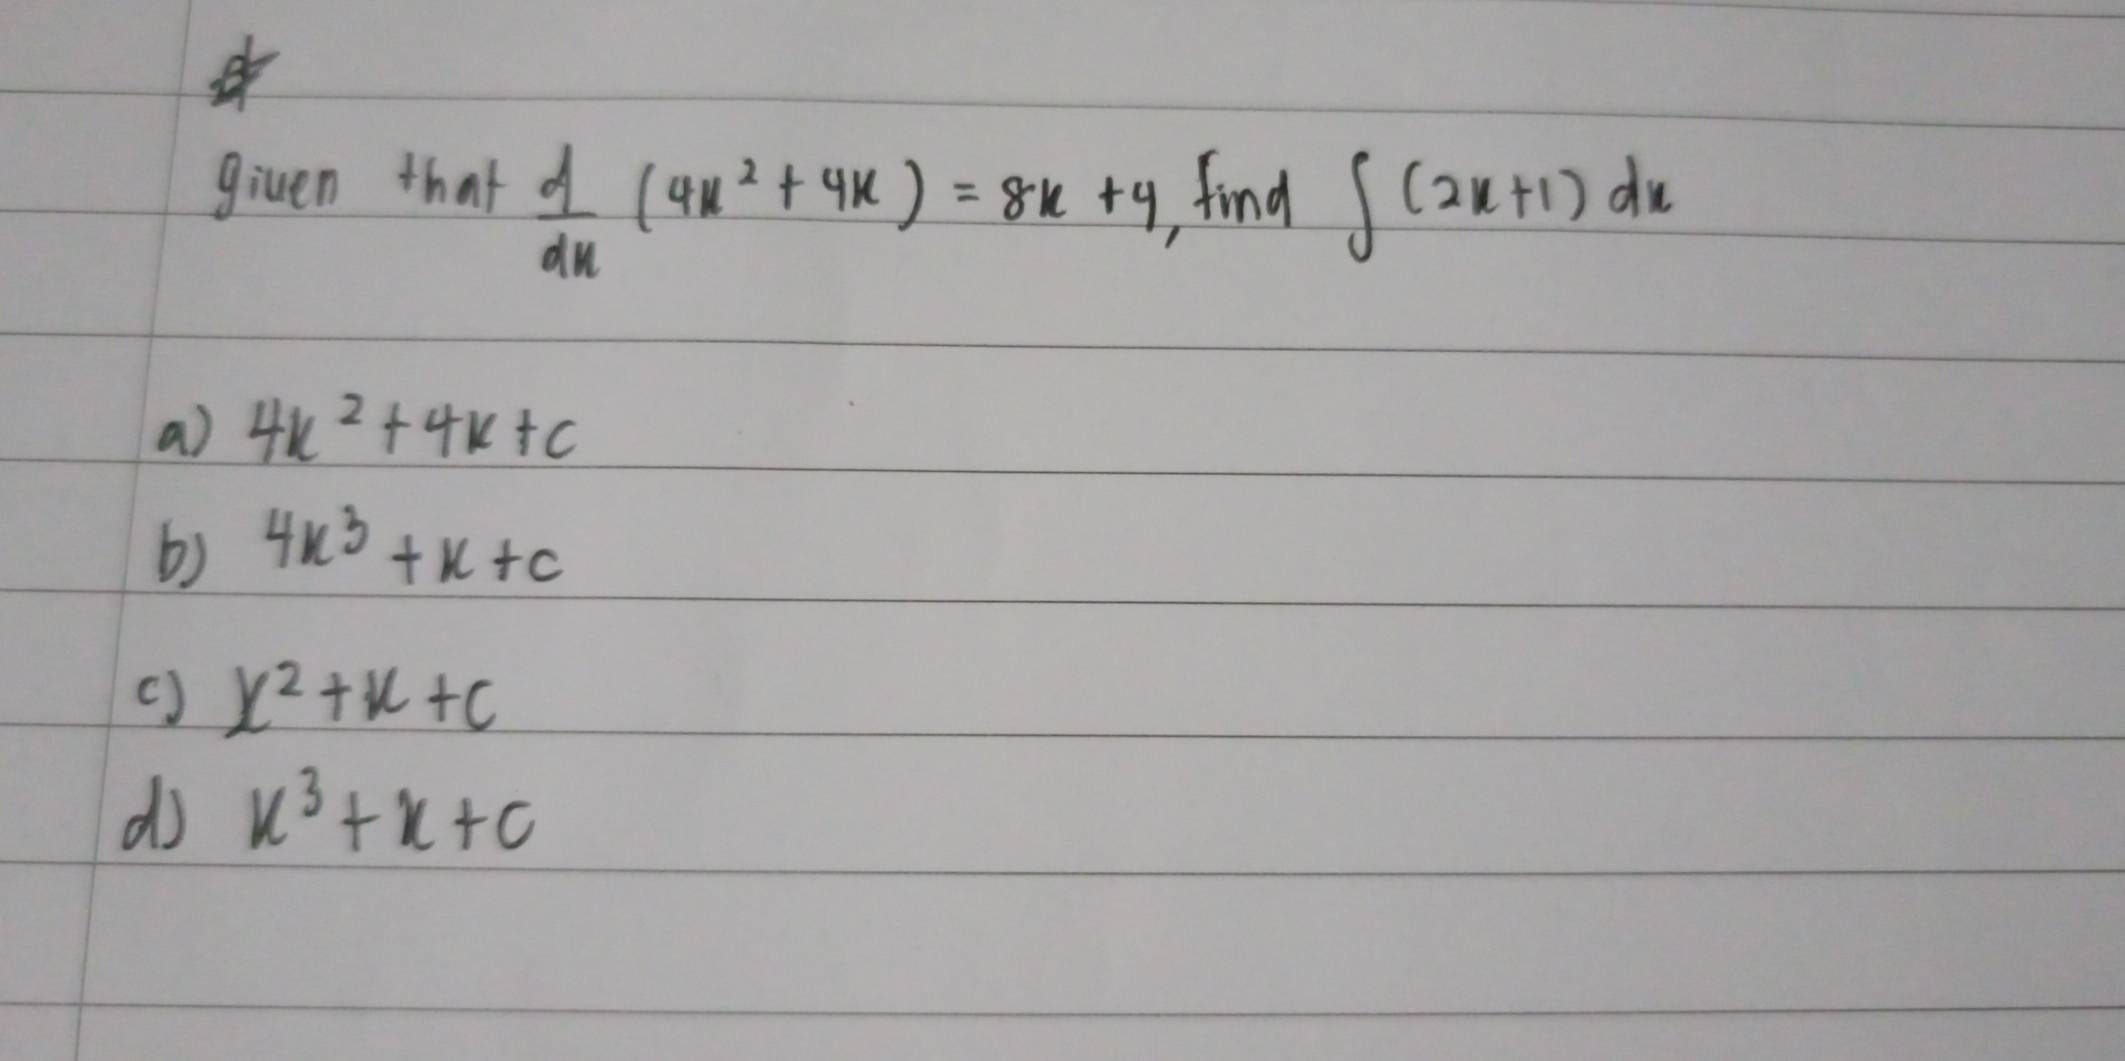 given that d/dx (4x² + 4x) = 8x + 4, find ∫ (2x+1) dx
a) 4x² + 4x + c
b) 4x³ + x + c
c) x² + x + c
d) x³ + x + c